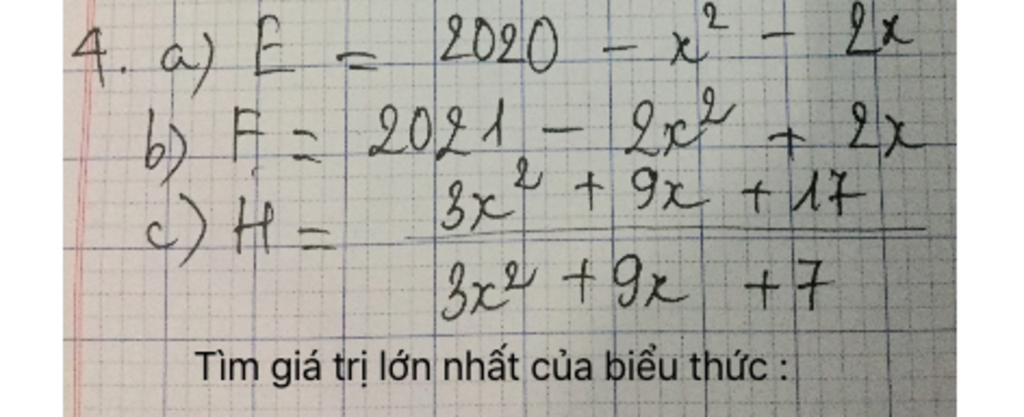 4. a) E = 2020 - x² - 2x
b) F = 2021 - 2x² + 2x
c) H = 3x² + 9x + 17
3x² + 9x + 7
Tìm giá trị lớn nhất của biểu thức :